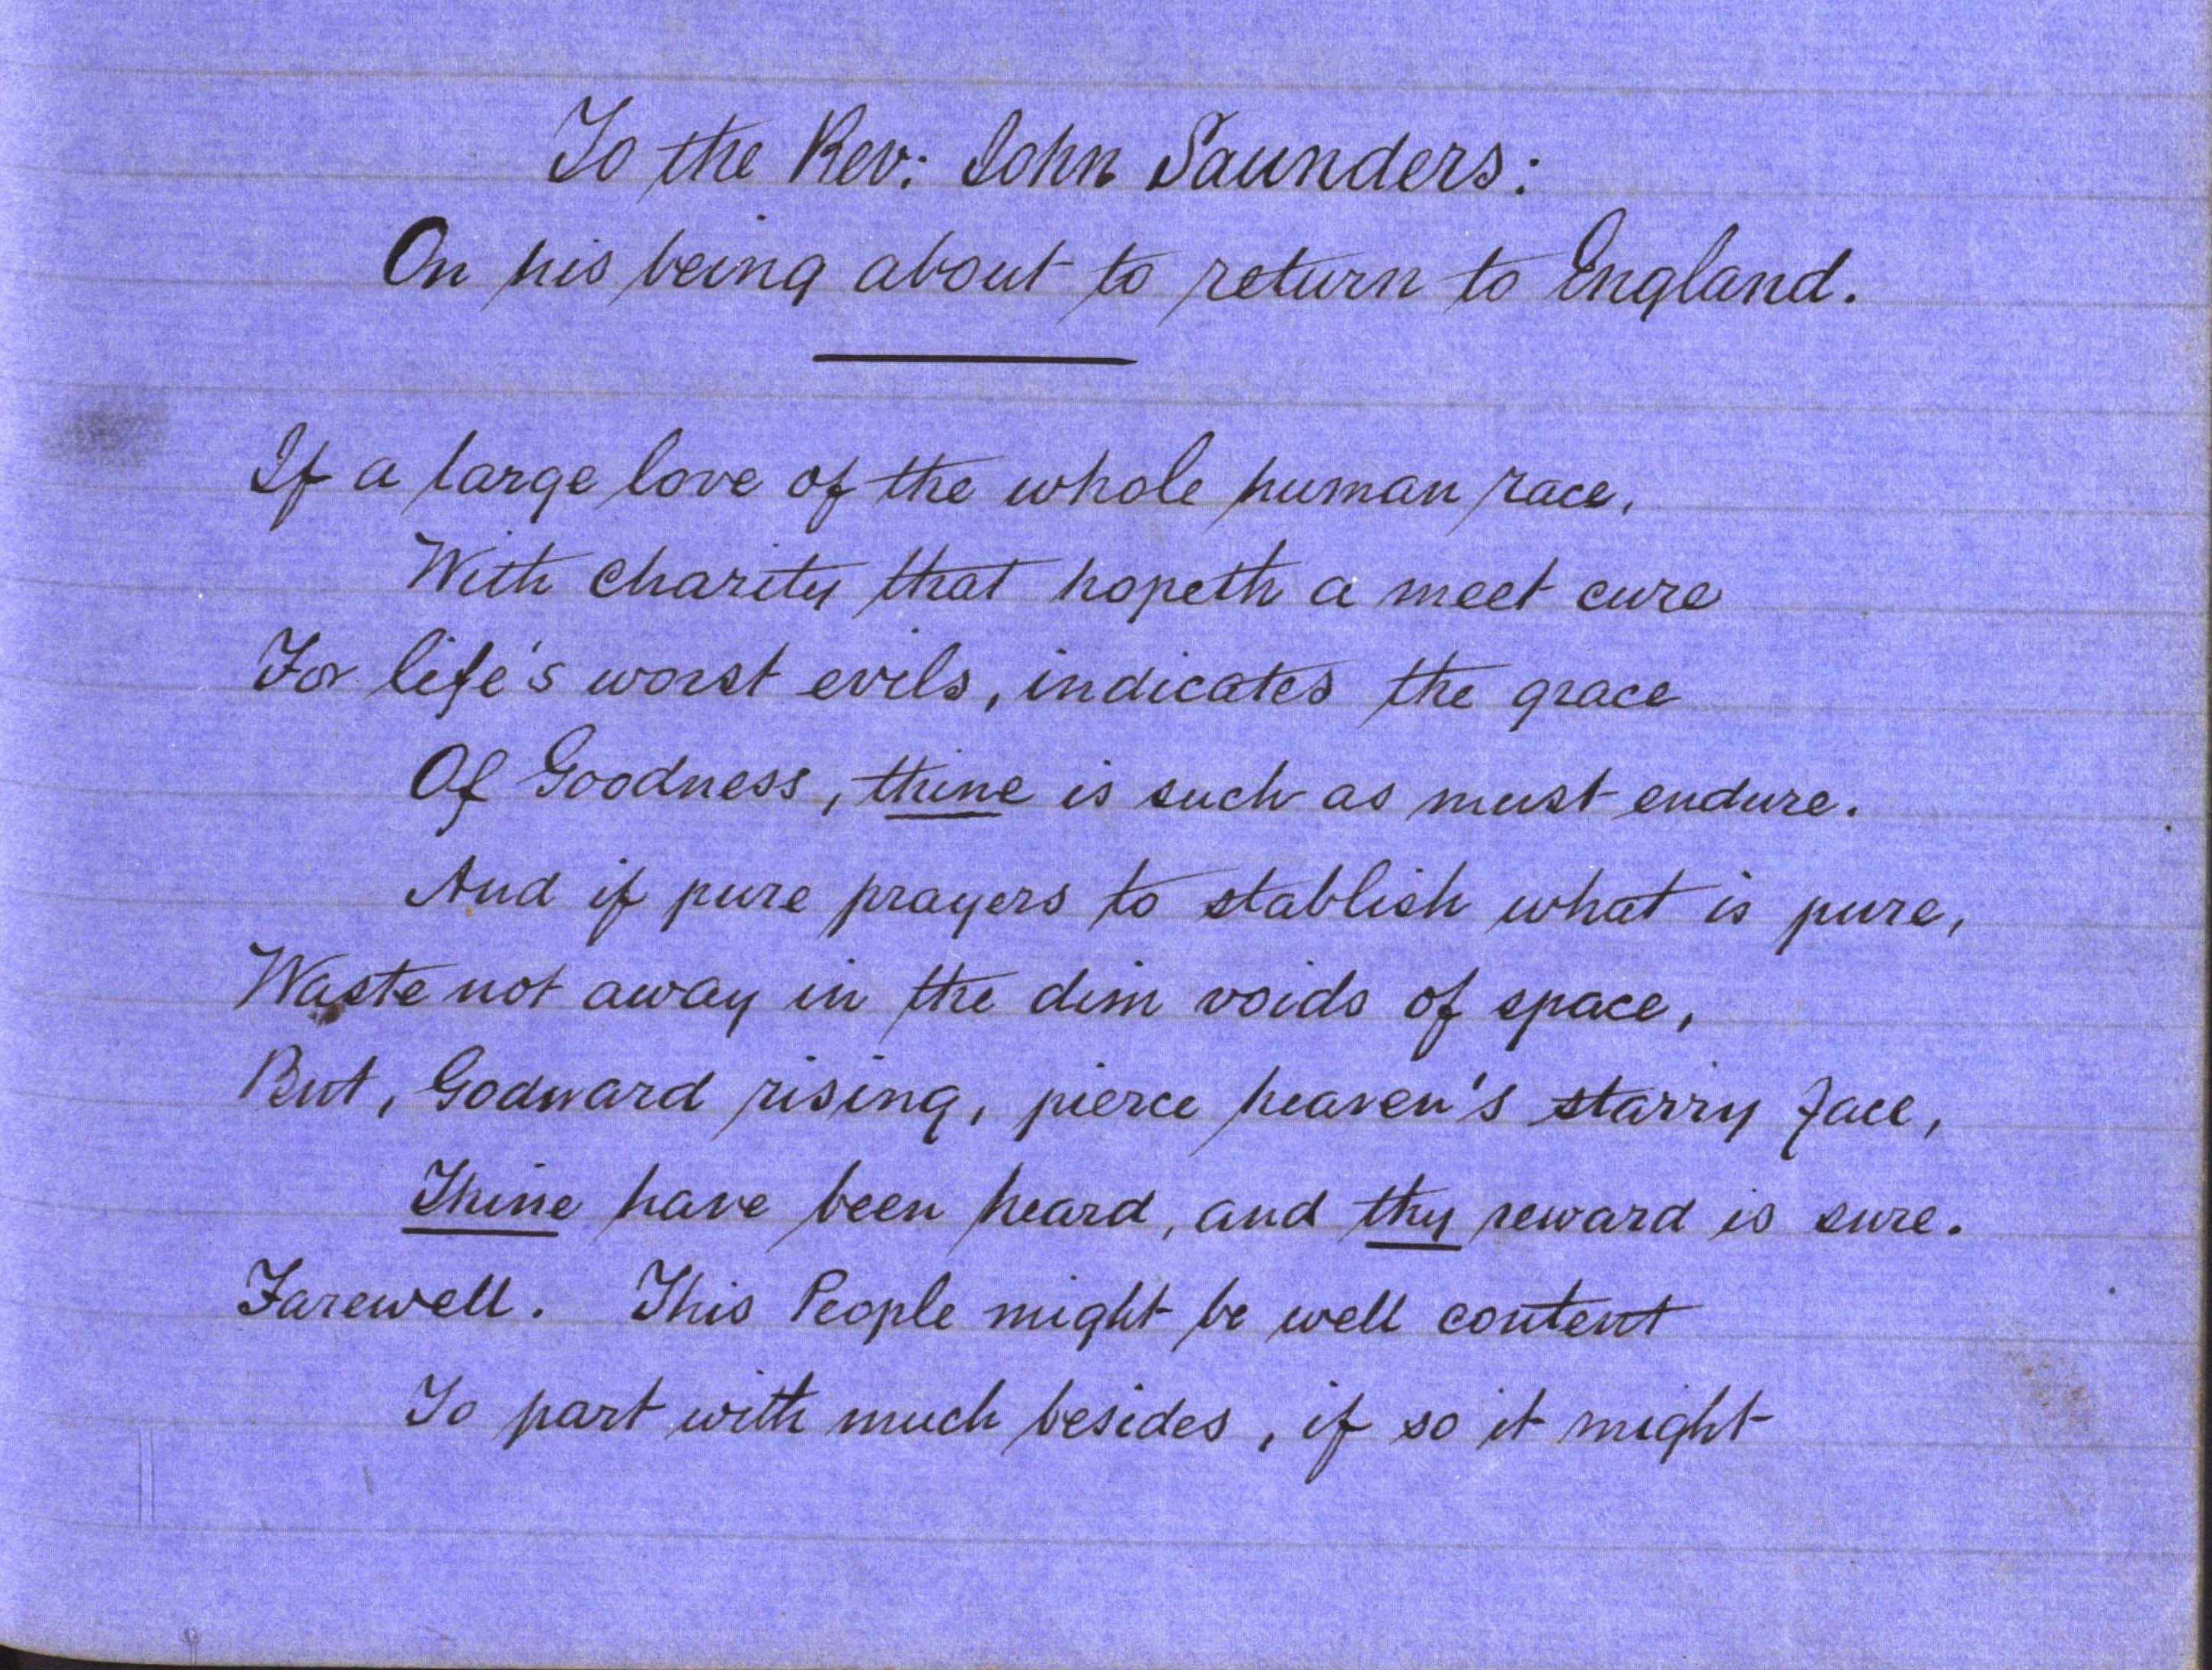 To the Rev: John Saunders:
On his being about to return to England.
If a large love of the whole human race,
With charity that hopeth a meet cure
For life's worst evils, indicates the grace
Of Goodness, thine is such as must endure.
And if pure prayers to stablish what is pure,
Waste not away in the dim voids of space,
But, Godward rising, pierce heaven's starry face,
Thine have been heard, and thy reward is sure.
Farewell. This People might be well content
To part with much besides, if so it might